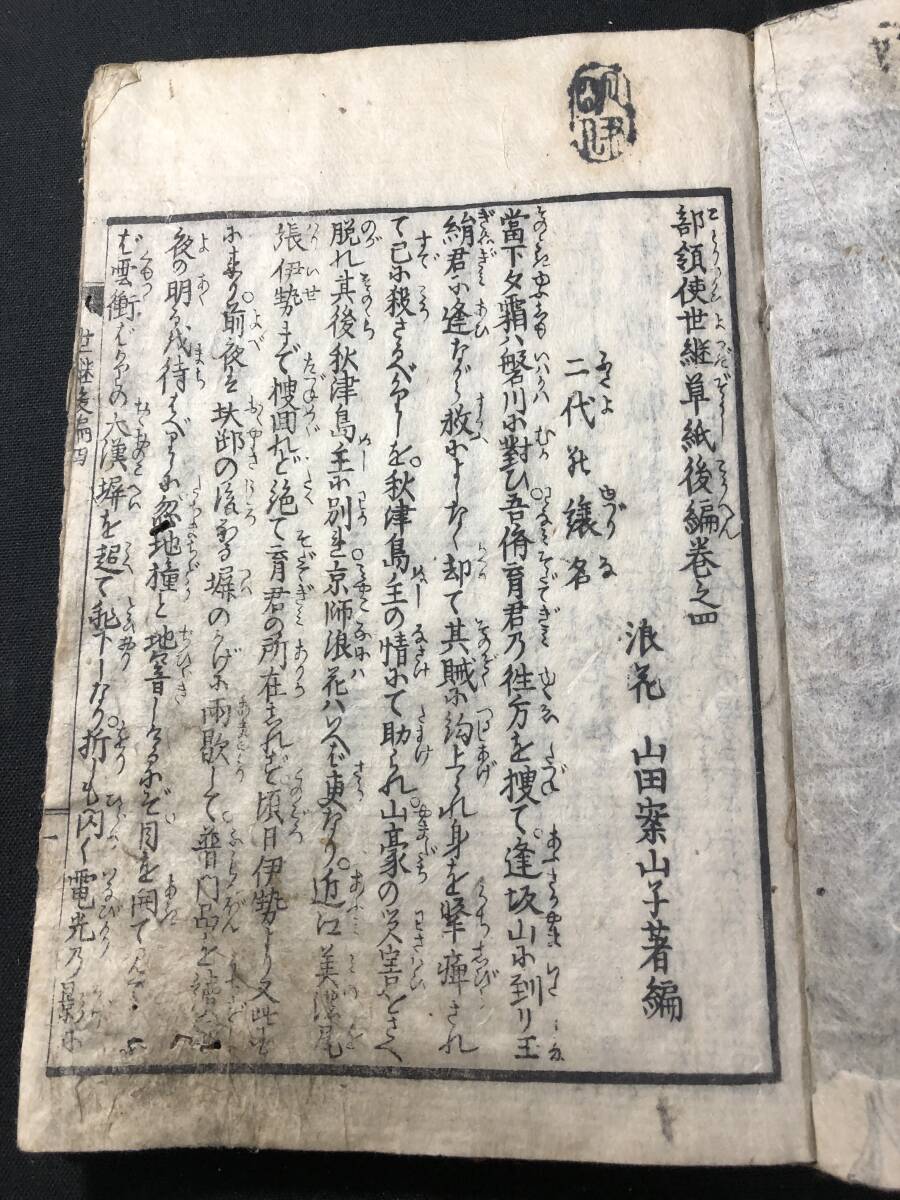 部領使世継草紙後編巻之四
浪花 山田案山子著編
二代の譲名
當下夕霜ハ磐川に對ひ吾儕育君乃往方を捜て。逢坂山に到り玉
絹君に逢ながら救によしなく却て其賊に絢上られ身を擊痺され
て已に殺さるべかりしを。秋津島主の情にて助られ山豪の災害をさへ
脱れ其後秋津島主に別れ京師浪花ハいへば更なり。近江美濃尾
張伊勢まで搜回れど絶て育君の所在しれざれば頃日伊勢より又此
に来り。前夜も扶邸の後なる塀のかげに雨歇して普門品を
夜の明るを待はべりしに忽地撞と地響しけるにぞ目を開て見
ば雲衝ばかりの大漢塀を超て飛下しなり。折しも閃く電光乃景に
世継後編四
一